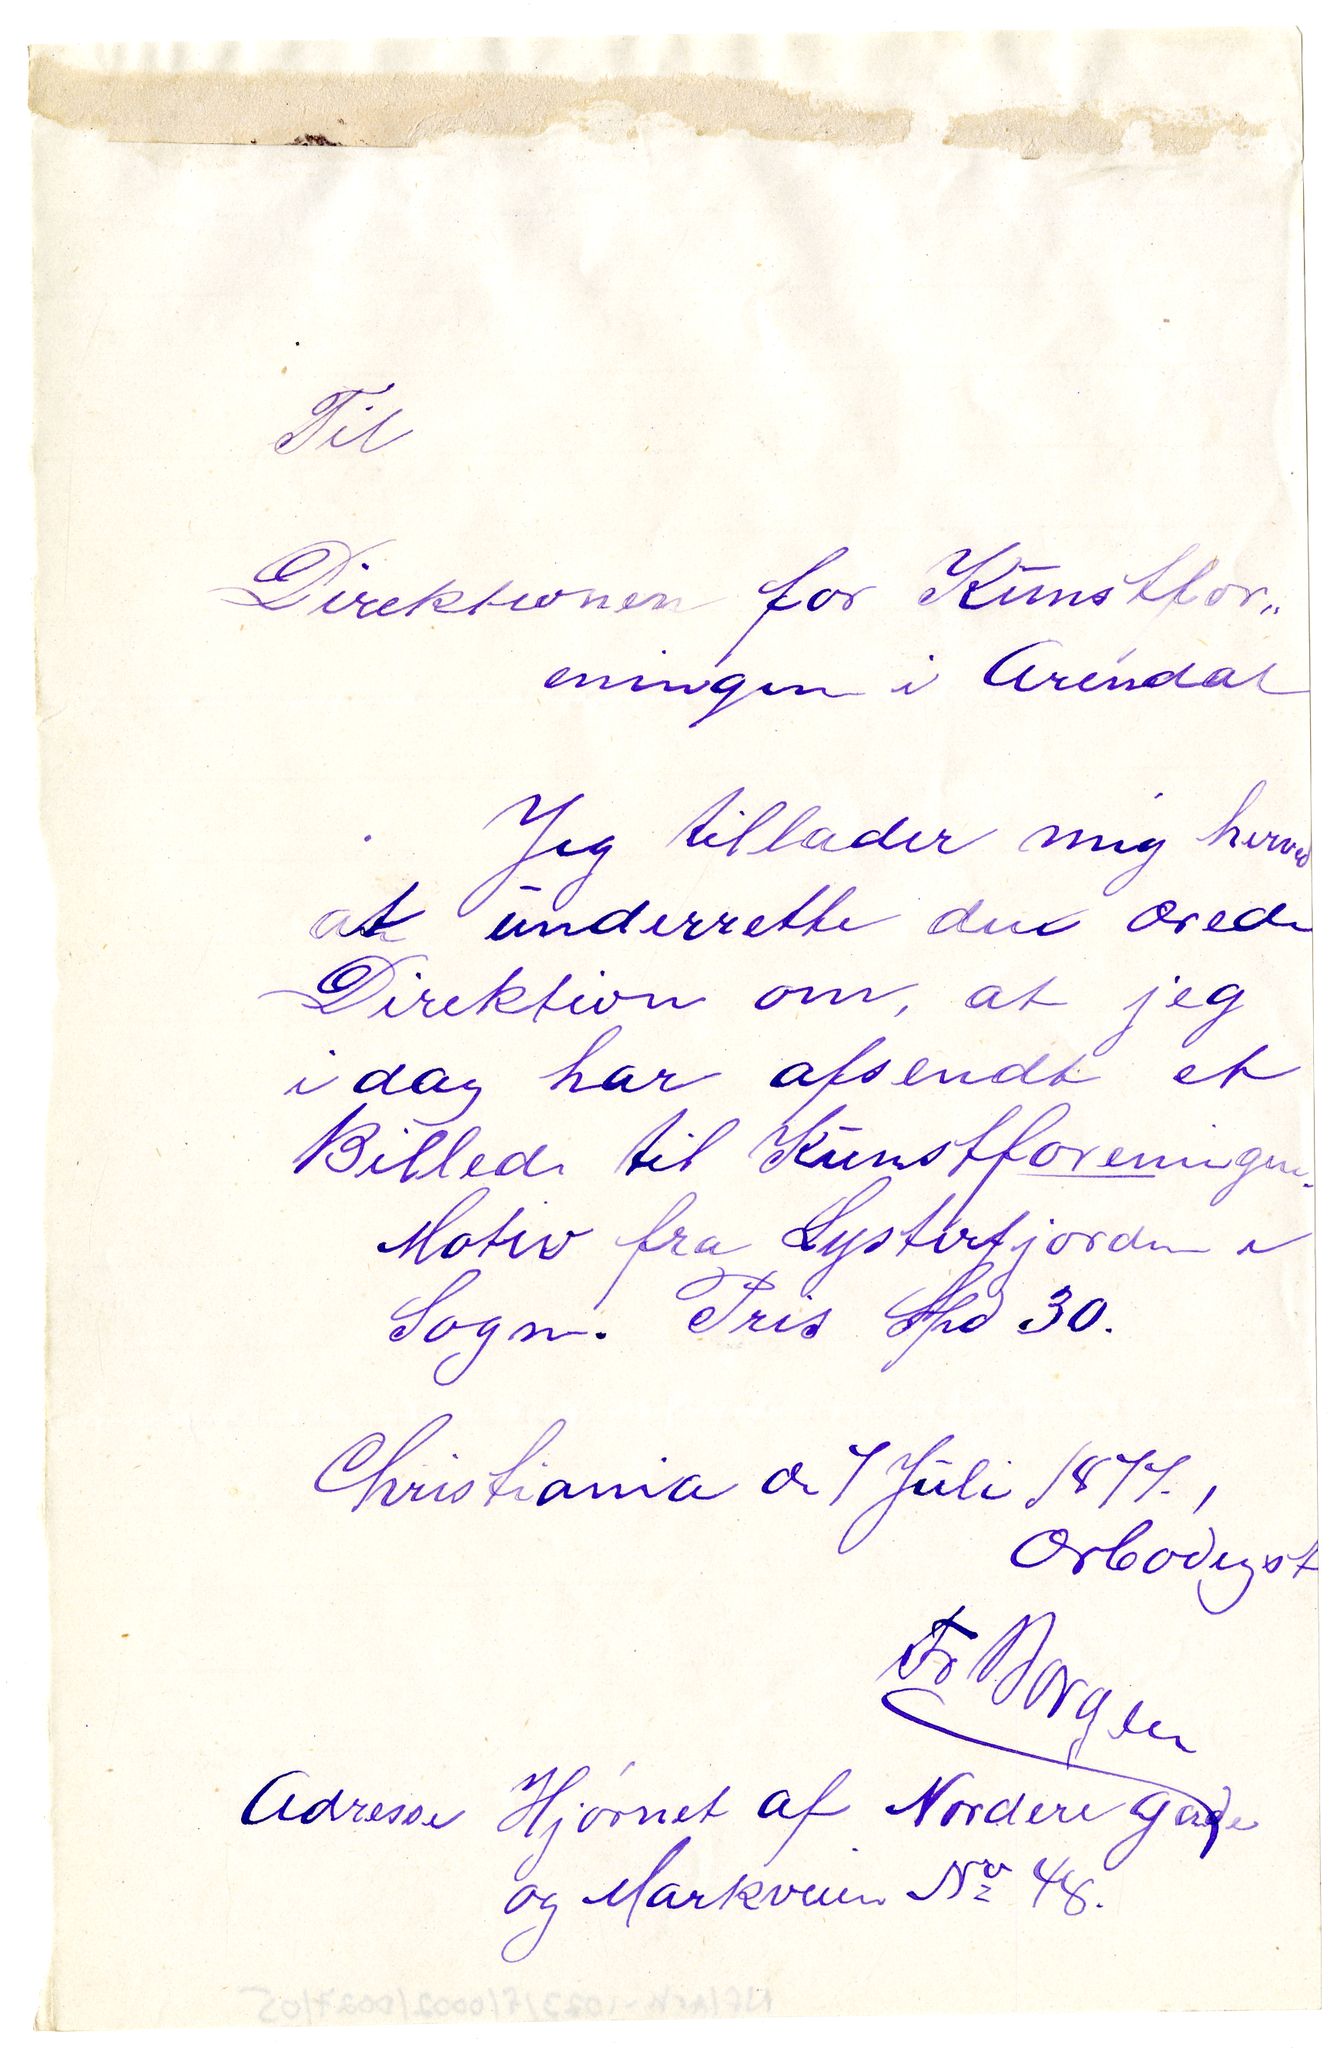 Til
Direktionen for Kunstfor„
eningen i Arendal
Jeg tillader mig herved
at underrette den ærede
Direktion om, at jeg
i dag har afsendt et
Billede til Kunstforeningen.
Motiv fra Lysterfjorden i
Sogn. Pris Spd 30.
Christiania d. 7 Juli 1877.,
Ærbødigst
Fr Borgen
Adresse Hjørnet af Nordere Gade
og Markveien No 48.